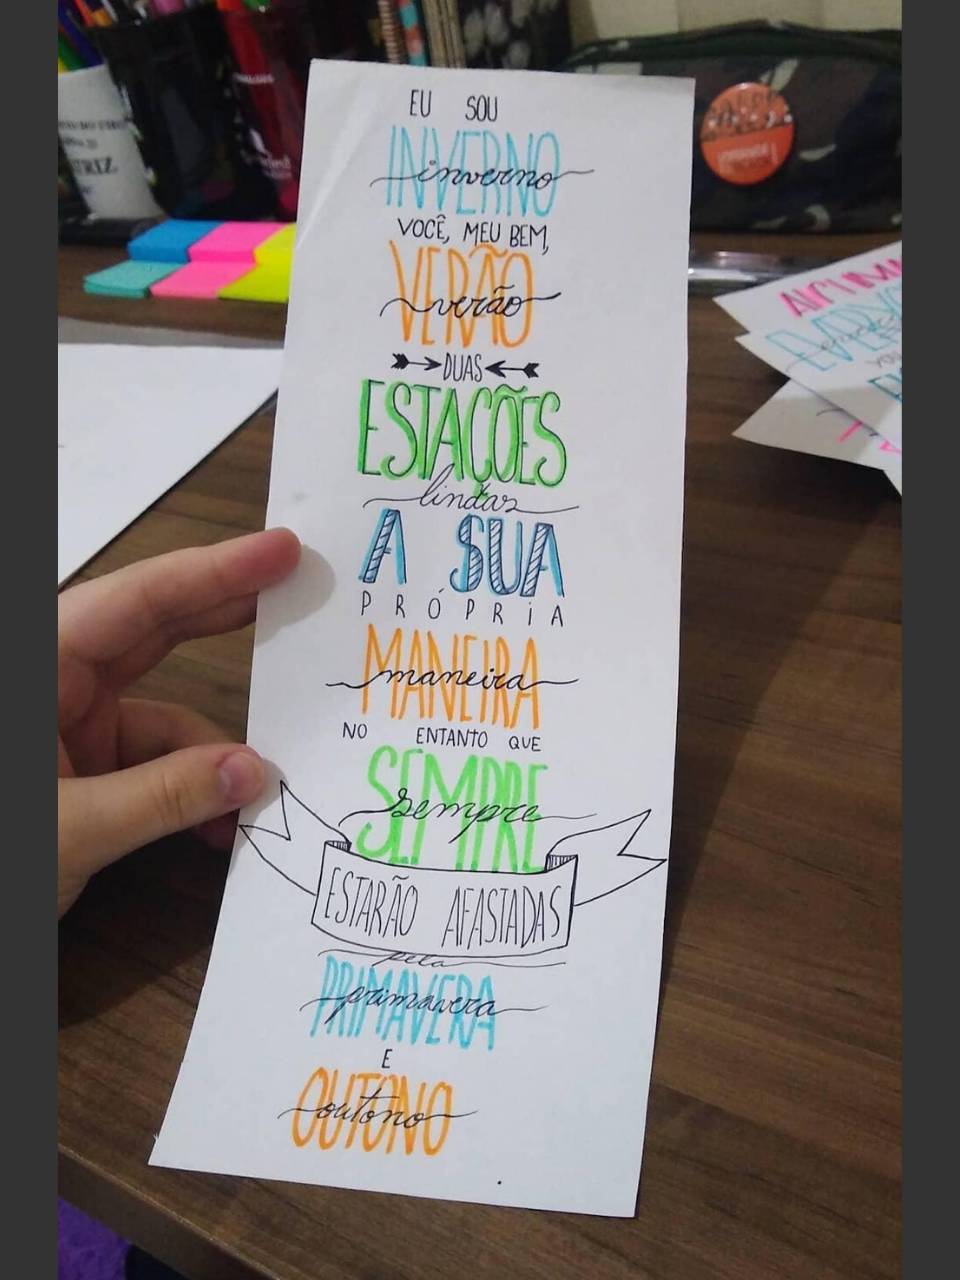 EU SOU
INVERNO
inverno
VOCÊ, MEU BEM,
VERÃO
verão
DUAS
ESTAÇÕES
lindas
A SUA
PRÓPRIA
MANEIRA
maneira
NO ENTANTO QUE
SEMPRE
sempre
ESTARÃO AFASTADAS
pela
PRIMAVERA
primavera
E
OUTONO
outono